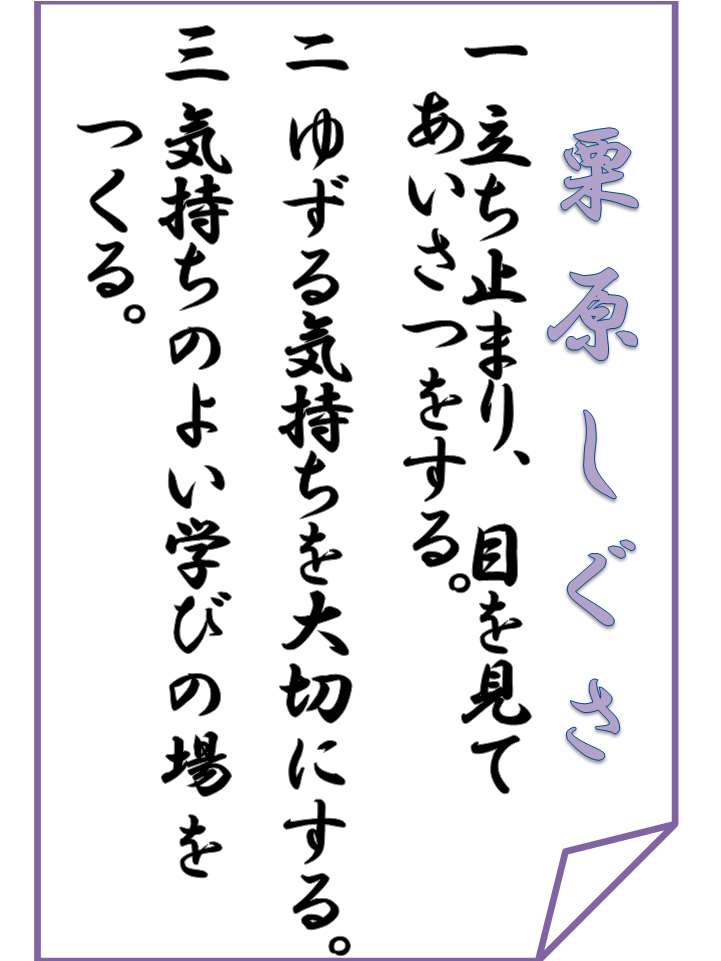 栗原しぐさ
一 立ち止まり、目を見て
あいさつをする。
二 ゆずる気持ちを大切にする。
三 気持ちのよい学びの場を
つくる。